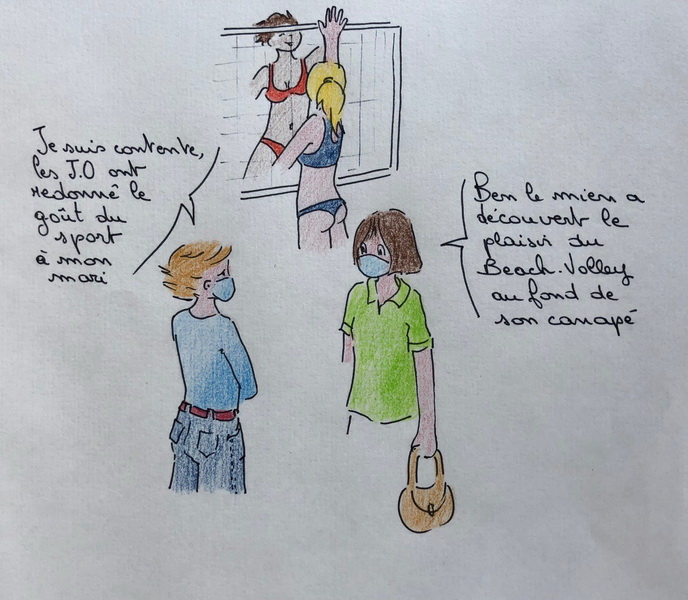 Je suis contente,
les J.O ont
redonné le
goût du
sport
à mon
mari
Ben le mien a
découvert le
plaisir du
Beach.Volley
au fond de
son canapé